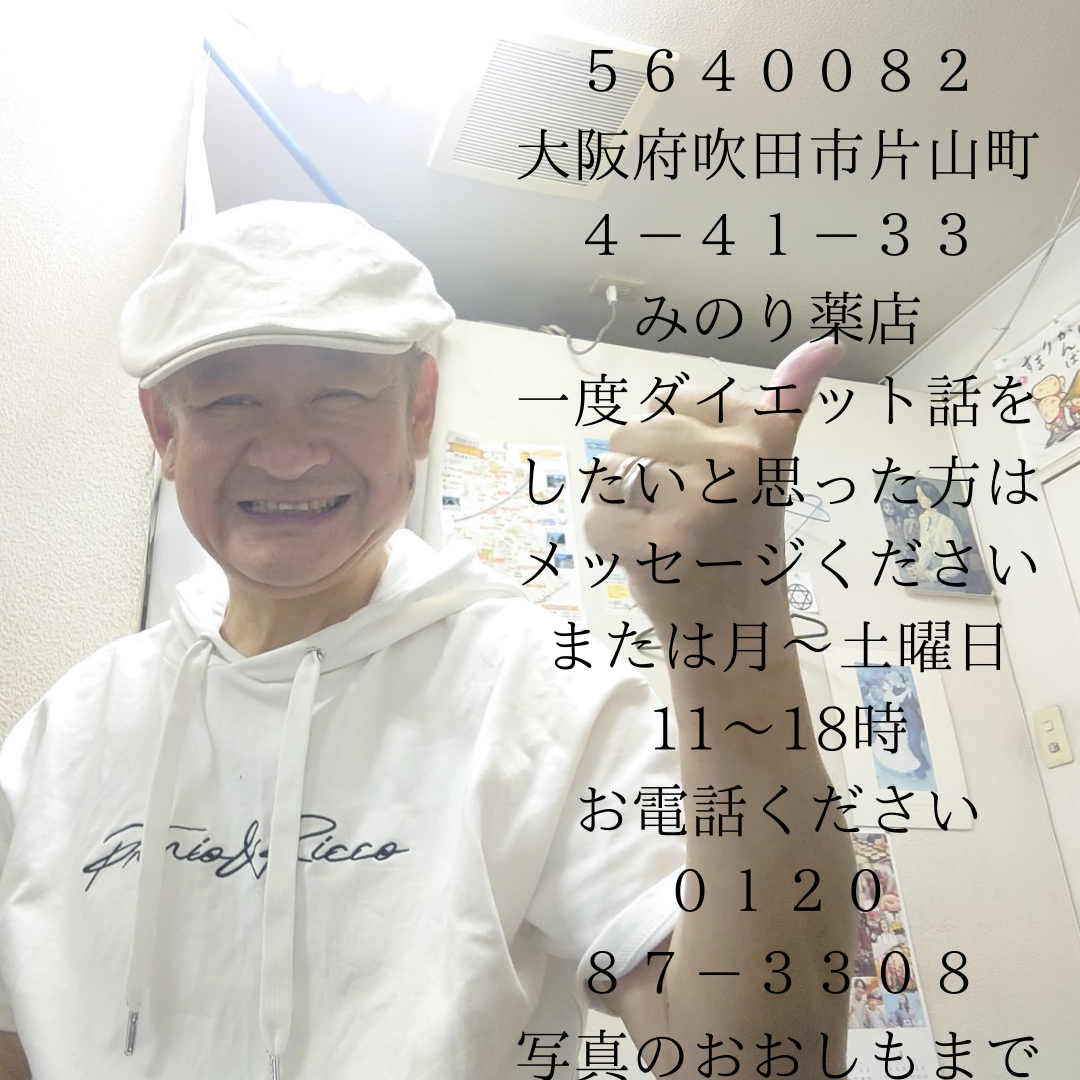 ５６４００８２
大阪府吹田市片山町
４－４１－３３
みのり薬店
一度ダイエット話を
したいと思った方は
メッセージください
または月～土曜日
11～18時
お電話ください
０１２０
８７－３３０８
写真のおおしもまで